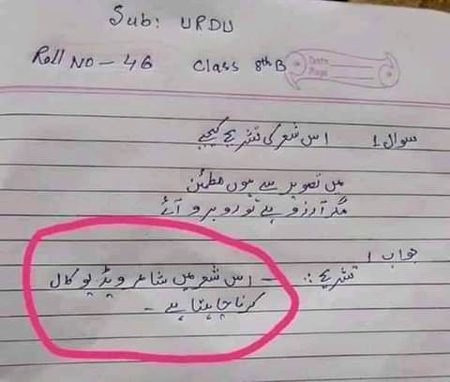 Sub: URDU
Roll No - 46 Class 8th B
Date
Page
سوال 1 اس شعر کی تشریح کیجیے
میں تصویر سے ہوں مطمئن
مگر آرزو ہے تو روبرو آئے
جواب 1
تشریح :- اس شعر میں شاعر ویڈیو کال
کرنا چاہتا ہے -